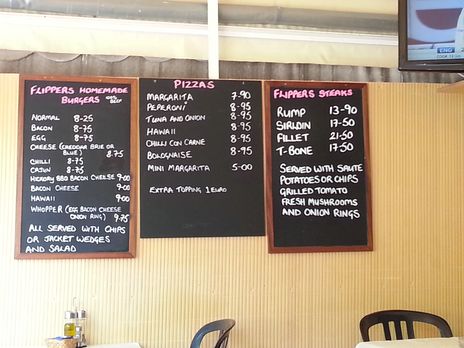 FLIPPERS HOMEMADE
BURGERS 100% BEEF
NORMAL 8-25
BACON 8-75
EGG 8-75
CHEESE (CHEDDAR BRIE OR
BLUE) 8.75
CHILLI 8-75
CAJUN 8-75
HICKORY BBQ BACON CHEESE 9.00
BACON CHEESE 9-00
HAWAII 9-00
WHOPPER (EGG BACON CHEESE
ONION RING) 9.75
ALL SERVED WITH CHIPS
OR JACKET WEDGES
AND SALAD
PIZZAS
MARGARITA 7-90
PEPERONI 8-95
TUNA AND ONION 8-95
HAWAII 8-95
CHILLI CON CARNE 8-95
BOLOGNAISE 8-95
MINI MARGARITA 5-00
EXTRA TOPPING 1 EURO
FLIPPERS STEAKS
RUMP 13-90
SIRLOIN 17-50
FILLET 21-50
T-BONE 17-50
SERVED WITH SAUTE
POTATOES OR CHIPS
GRILLED TOMATO
FRESH MUSHROOMS
AND ONION RINGS
ENG